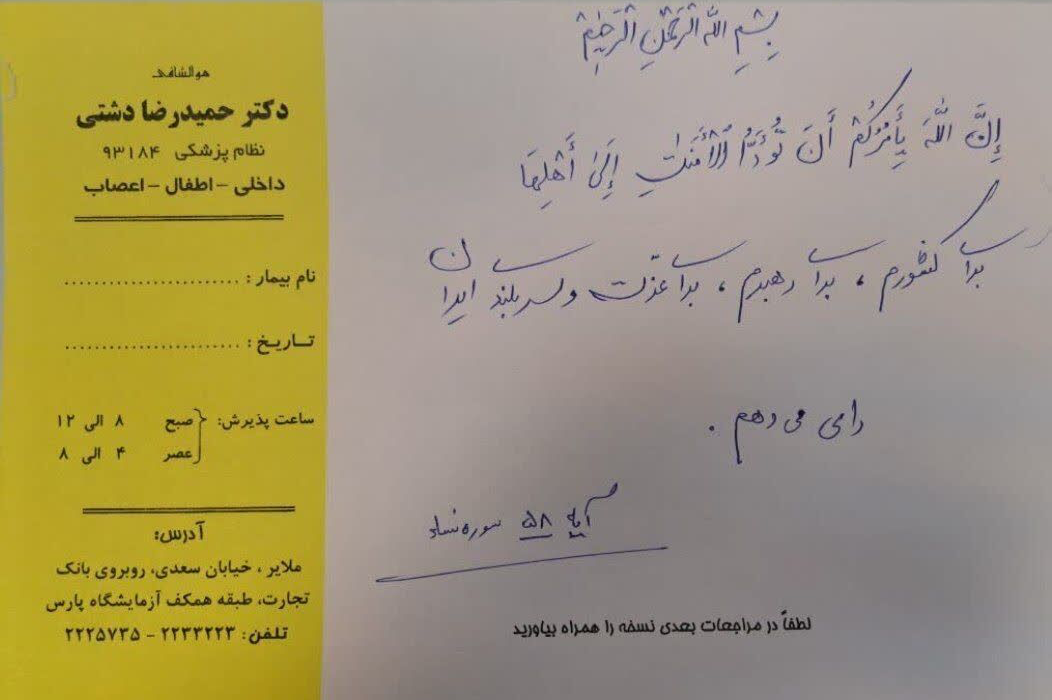 بِسْمِ اللهِ الرَّحْمٰنِ الرَّحِیْمِ
إِنَّ اللَّهَ یَأْمُرُكُمْ أَنْ تُؤَدُّوا الْأَمَٰنَٰتِ إِلَىٰ أَهْلِهَا
برای کشورم ، برای رهبرم ، برای عزّت و سربلندی ایران
رأی می دهم .
آیه ۵۸ سوره نساء
لطفاً در مراجعات بعدی نسخه را همراه بیاورید
هوالشافی
دکتر حمیدرضا دشتی
نظام پزشکی ۹۳۱۸۴
داخلی – اطفال – اعصاب
نام بیمار : ........................
تاریخ : ........................
ساعت پذیرش: صبح ۸ الی ۱۲
عصر ۴ الی ۸
آدرس:
ملایر ، خیابان سعدی، روبروی بانک
تجارت، طبقه همکف آزمایشگاه پارس
تلفن: ۲۲۳۳۲۲۳ – ۲۲۲۵۷۳۵